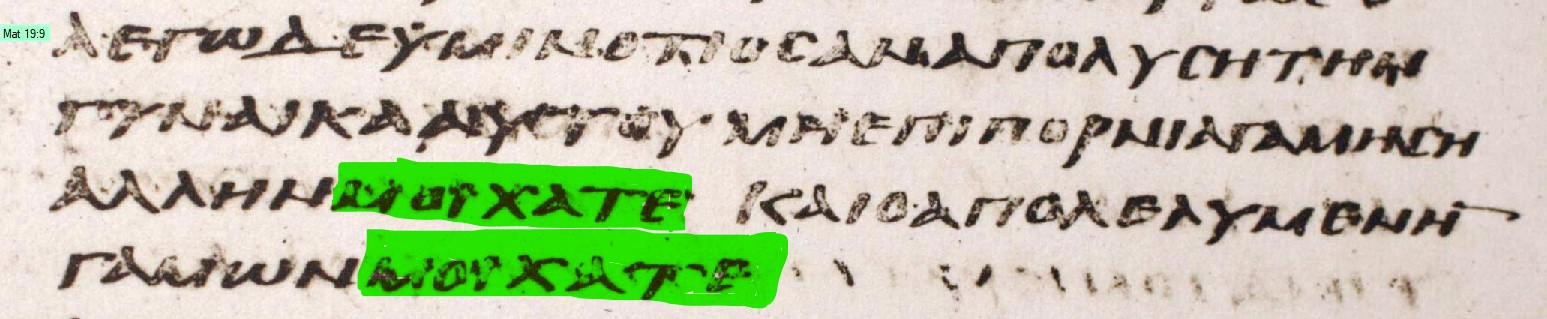 Mat 19:9
ΛΕΓωΔΕΫΜΙΝΟΤΙΟCΑΝΑΠΟΛΥCΗΤΗΝ
ΓΥΝΑΙΚΑΑΥΤΟΥ ΜΗΕΠΙΠΟΡΝΙΑΚΑΙΓΑΜΗCΗ
ΑΛΛΗΝΜΟΙΧΑΤΕ ΚΑΙΟΑΠΟΛΕΛΥΜΕΝΗΝ
ΓΑΜωΝΜΟΙΧΑΤΕ